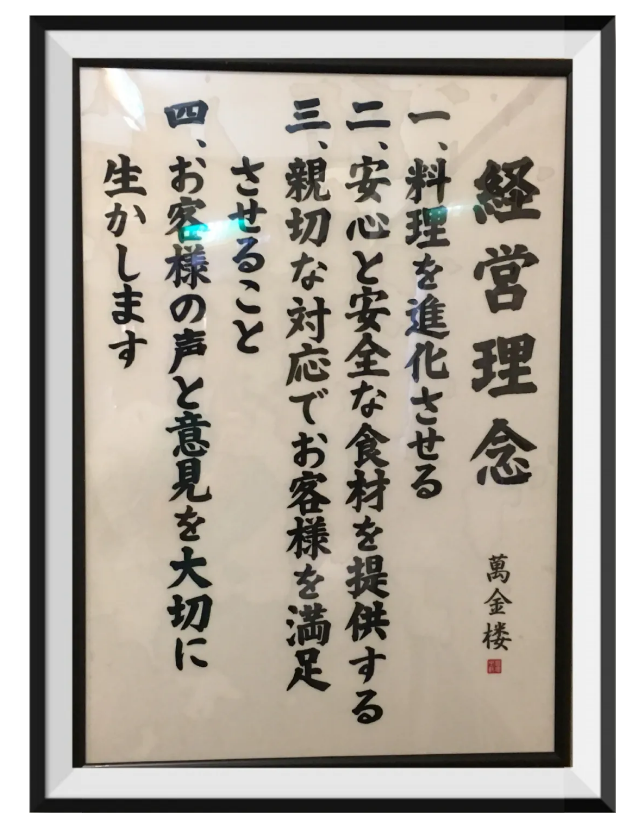 経営理念
萬金楼
一、料理を進化させる
二、安心と安全な食材を提供する
三、親切な対応でお客様を満足
させること
四、お客様の声と意見を大切に
生かします